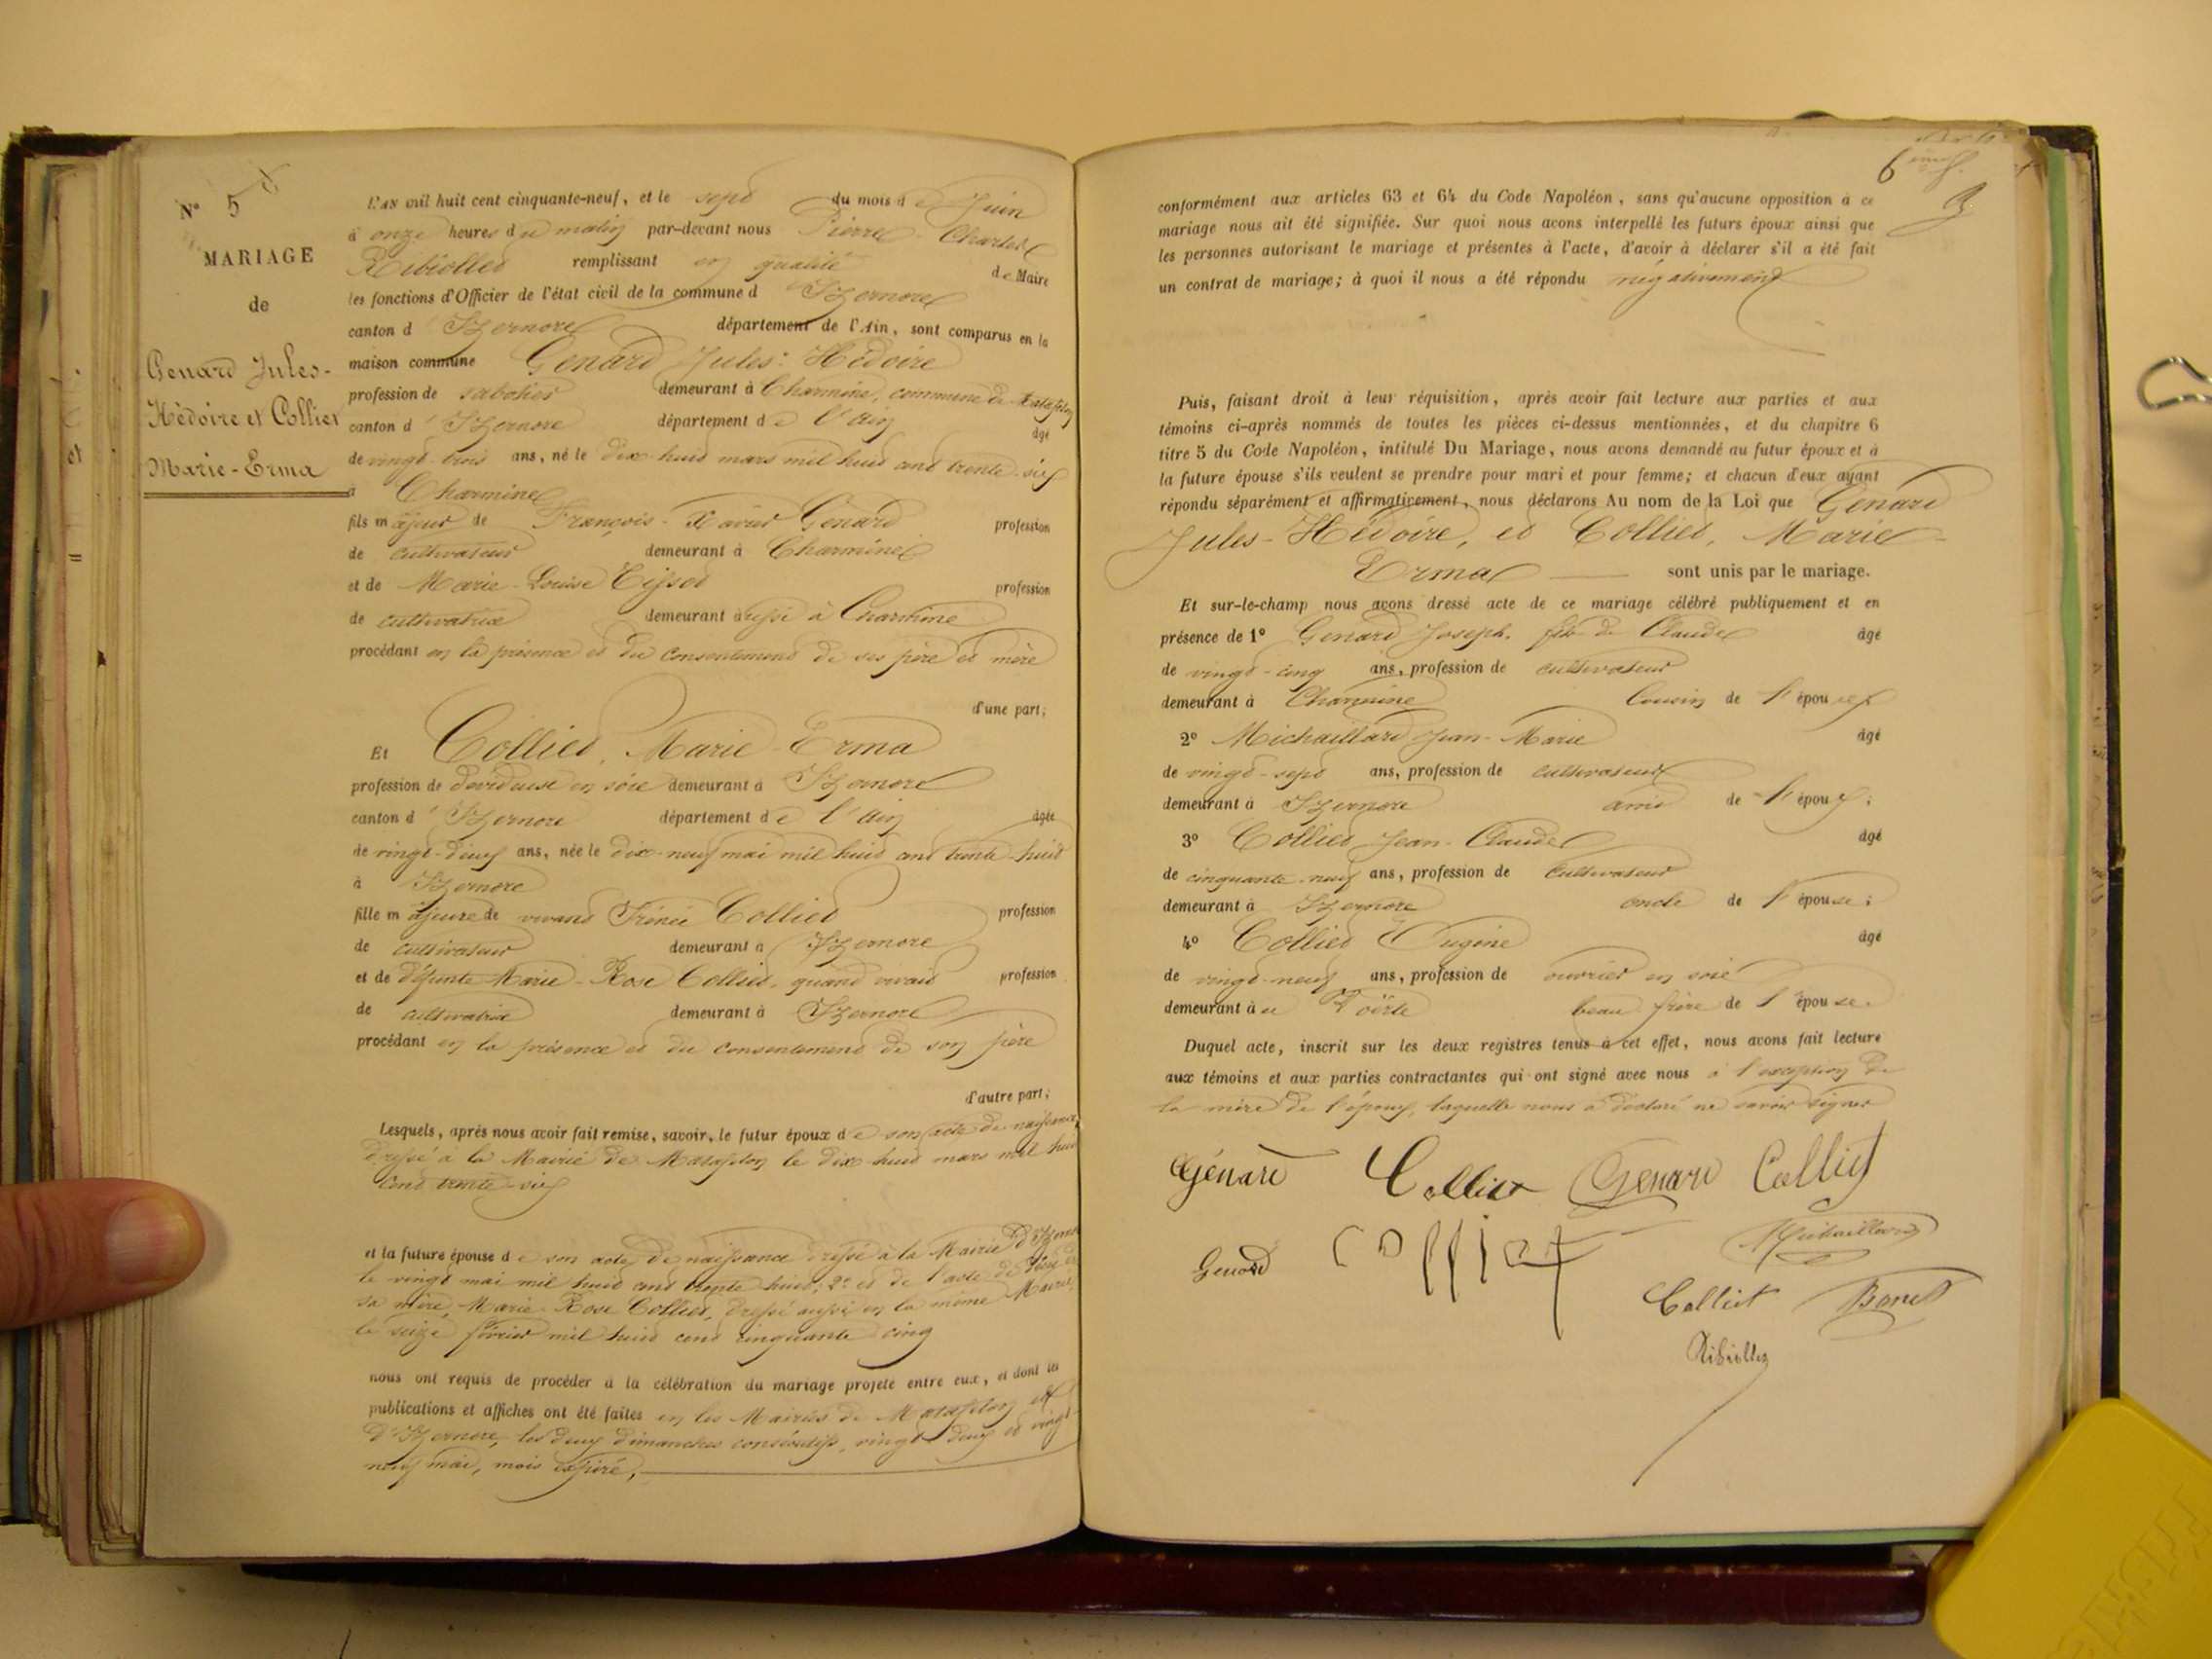 N° 5
MARIAGE
de
Genard Jules-
Hèdoire et Colliet
Marie-Erma
L'AN mil huit cent cinquante-neuf, et le sept du mois de Juin
à onze heures du matin par-devant nous Pierre-Charles
Ribiollet remplissant en qualité de Maire
les fonctions d'Officier de l'état civil de la commune d'Izernore
canton d'Izernore département de l'Ain, sont comparus en la
maison commune Genard Jules-Hèdoire
profession de sabotier demeurant à Charmine, commune de Matafelon
canton d'Izernore département de l'Ain âgé
de vingt-trois ans, né le dix-huit mars mil huit cent trente-six
à Charmine
fils majeur de François-Xavier Genard profession
de cultivateur demeurant à Charmine
et de Marie-Louise Tissot profession
de cultivatrice demeurant aussi à Charmine
procédant en la présence et du consentement de ses père et mère
d'une part;
Et Colliet, Marie-Erma
profession de dévideuse en soie demeurant à Izernore
canton d'Izernore département de l'Ain âgée
de vingt-deux ans, née le dix-neuf mai mil huit cent trente-huit
à Izernore
fille majeure de vivant Irénée Colliet profession
de cultivateur demeurant à Izernore
et de défunte Marie-Rose Colliet, quand vivait profession
de cultivatrice demeurant à Izernore
procédant en la présence et du consentement de son père
d'autre part;
Lesquels, après nous avoir fait remise, savoir, le futur époux de son acte de naissance,
dressé à la Mairie de Matafelon le dix-huit mars mil huit
cent trente-six
et la future épouse de son acte de naissance dressé à la Mairie d'Izernore
le vingt mai mil huit cent trente-huit; 2° et de l'acte de décès de
sa mère, Marie-Rose Colliet, dressé aussi en la même Mairie,
le seize février mil huit cent cinquante cinq
nous ont requis de procéder à la célébration du mariage projeté entre eux, et dont les
publications et affiches ont été faites en les Mairies de Matafelon et
d'Izernore, les deux dimanches consécutifs, vingt-deux et vingt-
neuf mai, mois expiré,
6
conformément aux articles 63 et 64 du Code Napoléon, sans qu'aucune opposition à ce
mariage nous ait été signifiée. Sur quoi nous avons interpellé les futurs époux ainsi que
les personnes autorisant le mariage et présentes à l'acte, d'avoir à déclarer s'il a été fait
un contrat de mariage; à quoi il nous a été répondu négativement
Puis, faisant droit à leur réquisition, après avoir fait lecture aux parties et aux
témoins ci-après nommés de toutes les pièces ci-dessus mentionnées, et du chapitre 6
titre 5 du Code Napoléon, intitulé Du Mariage, nous avons demandé au futur époux et à
la future épouse s'ils veulent se prendre pour mari et pour femme; et chacun d'eux ayant
répondu séparément et affirmativement, nous déclarons Au nom de la Loi que Genard
Jules-Hèdoire, et Colliet, Marie-
Erma sont unis par le mariage.
Et sur-le-champ nous avons dressé acte de ce mariage célébré publiquement et en
présence de 1° Genard Joseph, fils de Claude âgé
de vingt-cinq ans, profession de cultivateur
demeurant à Charmine Cousin de l'époux
2° Michaillard Jean-Marie âgé
de vingt-sept ans, profession de cultivateur
demeurant à Izernore ami de l'époux;
3° Colliet Jean-Claude âgé
de cinquante-neuf ans, profession de Cultivateur
demeurant à Izernore oncle de l'épouse;
4° Colliet Eugène âgé
de vingt-neuf ans, profession de ouvrier en soie
demeurant à beau frère de l'épouse.
Duquel acte, inscrit sur les deux registres tenus à cet effet, nous avons fait lecture
aux témoins et aux parties contractantes qui ont signé avec nous à l'exception de
la mère de l'époux, laquelle nous a déclaré ne savoir signer
Génard Colliet Genard Colliet
Genard Colliet Michaillard
Colliet Borret
Ribiollet